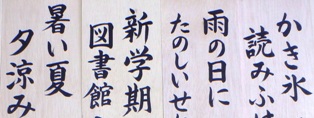 かき氷
読みふけ
雨の日に
たのしいせ
新学期
図書館
暑い夏
夕涼み